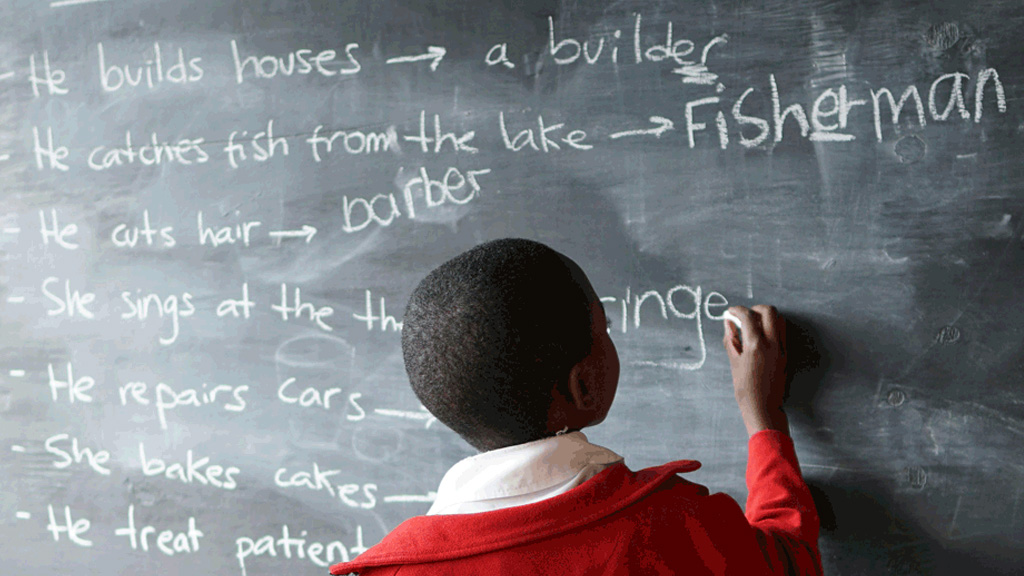 - He builds houses → a builder
- He catches fish from the lake → Fisherman
- He cuts hair → barber
- She sings at the th
- He repairs cars →
- She bakes cakes →
- He treat patient